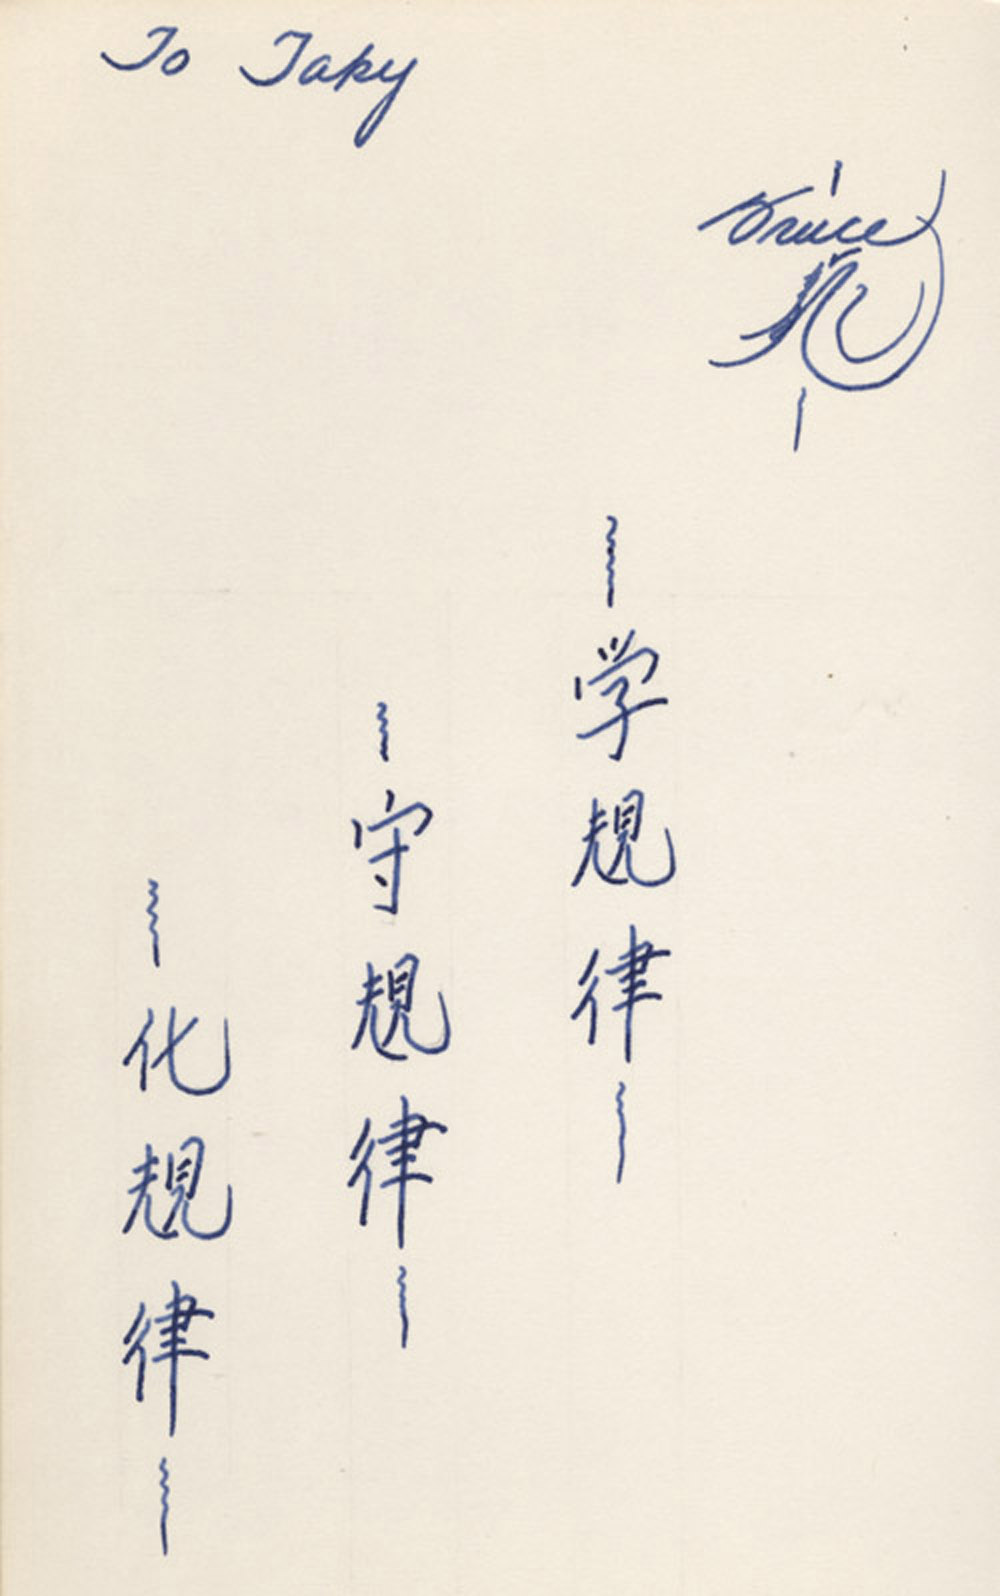 To Taky
Bruce
学規律
守規律
化規律